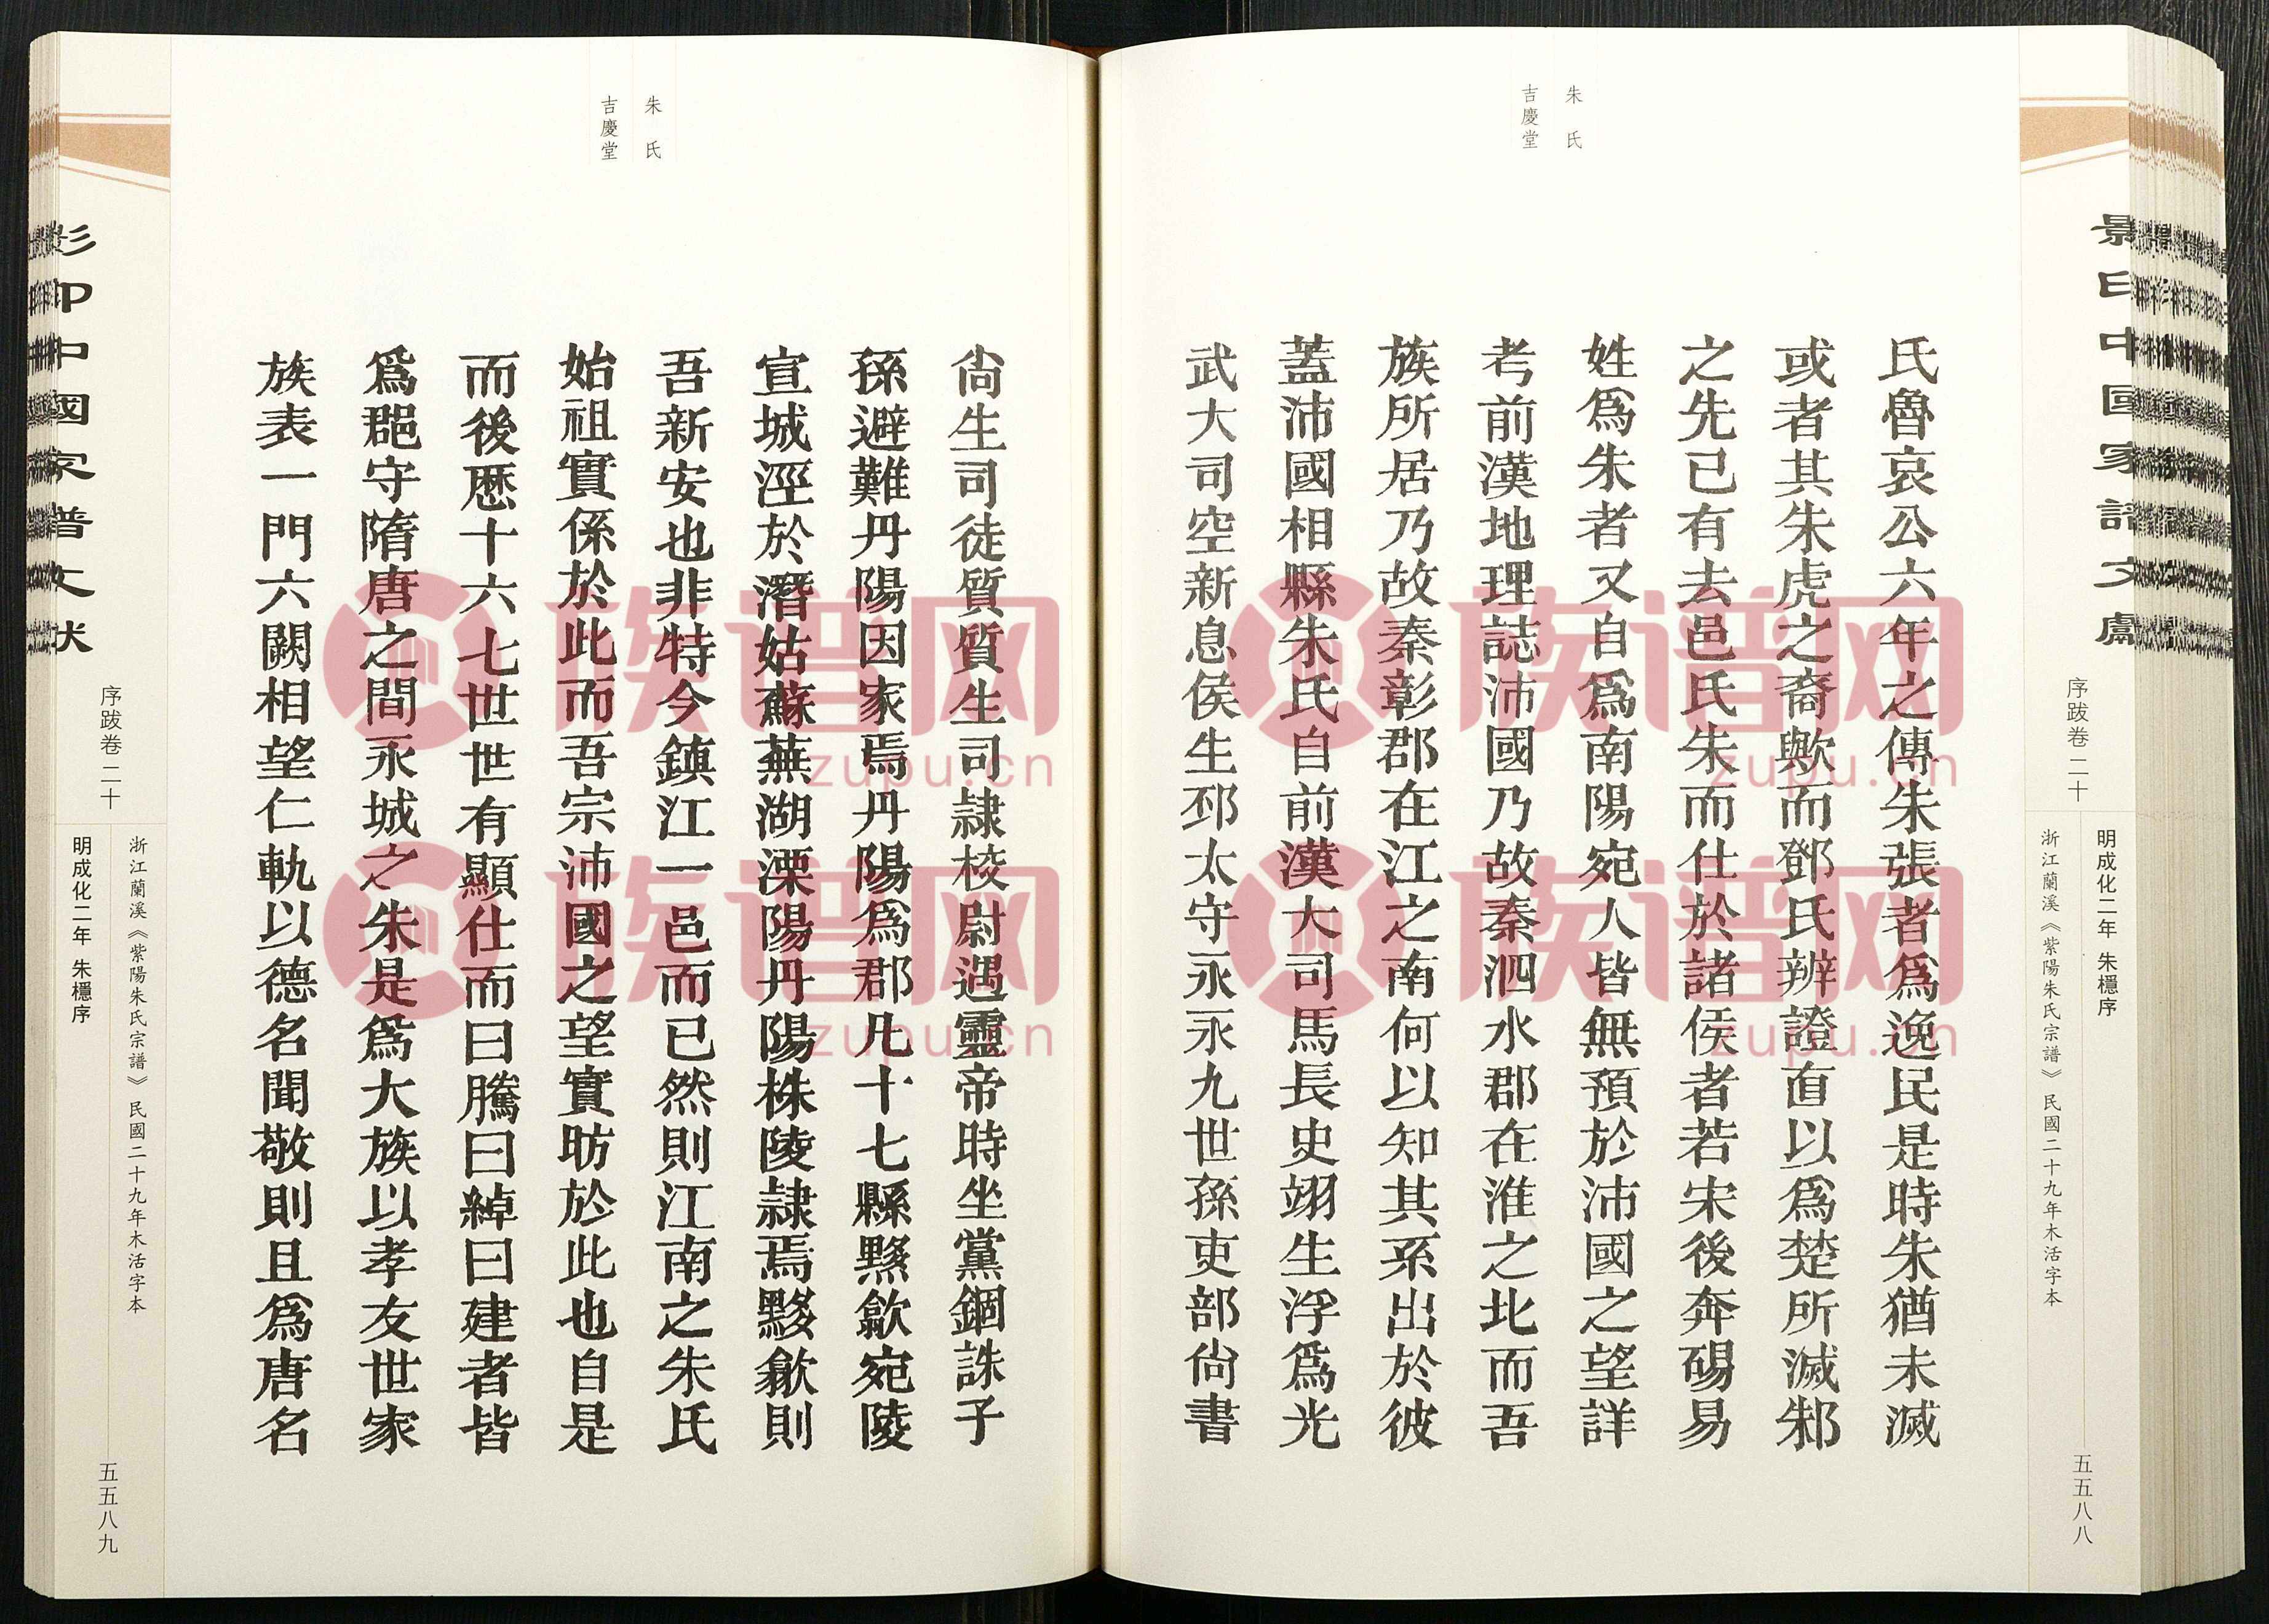 景印中國家譜文獻
序跋卷二十
明成化二年 朱檼序
浙江蘭溪《紫陽朱氏宗譜》民國二十九年木活字本
五五八八
朱氏
吉慶堂
氏魯哀公六年之傳朱張者爲逸民是時朱猶未滅
或者其朱虎之裔歟而鄧氏辨證直以爲楚所滅邾
之先已有去邑氏朱而仕於諸侯者若宋後奔碭易
姓爲朱者又自爲南陽宛人皆無預於沛國之望詳
考前漢地理誌沛國乃故秦泗水郡在淮之北而吾
族所居乃故秦彰郡在江之南何以知其系出於彼
蓋沛國相縣朱氏自前漢大司馬長史翊生浮爲光
武大司空新息侯生邳太守永永九世孫吏部尙書
尙生司徒質質生司隷校尉遇靈帝時坐黨錮誅子
孫避難丹陽因家焉丹陽爲郡凡十七縣黟歙宛陵
宣城涇於潛姑蘇蕪湖溧陽丹陽株陵隷焉黟歙則
吾新安也非特今鎮江一邑而已然則江南之朱氏
始祖實係於此而吾宗沛國之望實昉於此也自是
而後歷十六七世世有顯仕而曰騰曰綽曰建者皆
爲郡守隋唐之間永城之朱是爲大族以孝友世家
族表一門六闕相望仁軌以德名聞敬則且爲唐名
朱氏
吉慶堂
影印中國家譜文獻
序跋卷二十
浙江蘭溪《紫陽朱氏宗譜》民國二十九年木活字本
明成化二年 朱檼序
五五八九
族谱网
zupu.cn
族谱网
zupu.cn
族谱网
zupu.cn
族谱网
zupu.cn